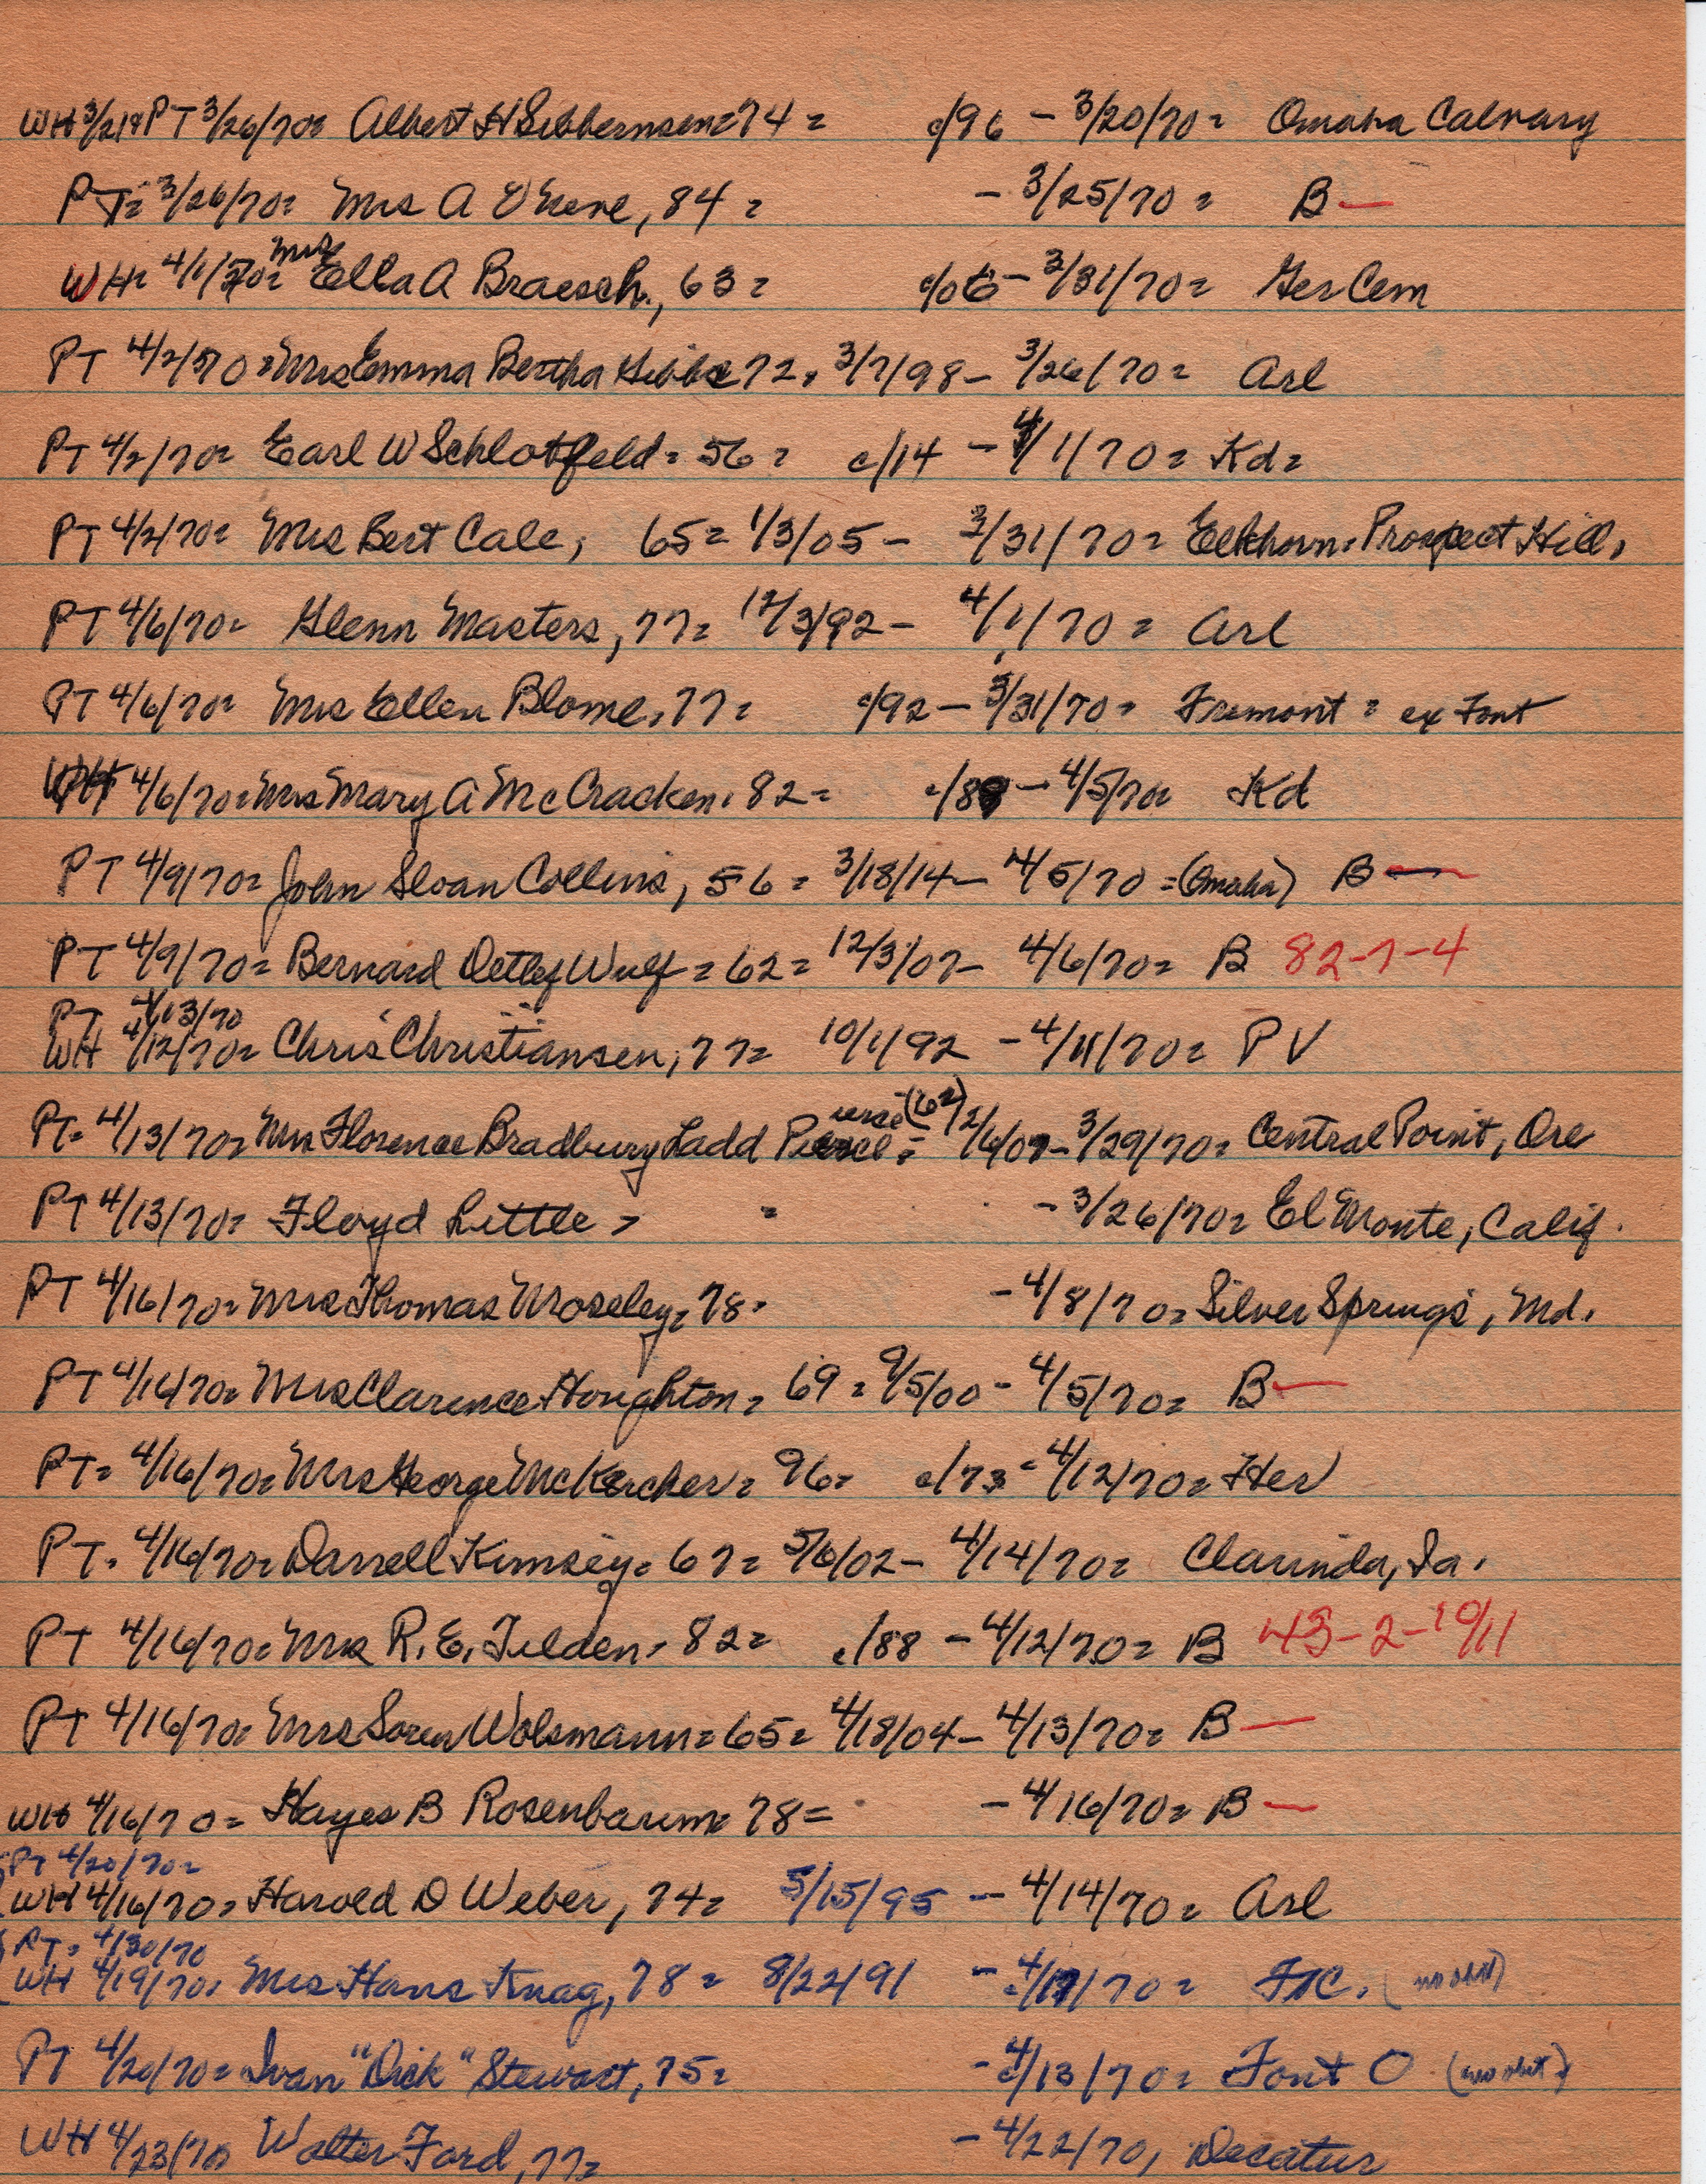 WH 3/21 & PT 3/26/70= Albert H Sibbernsen= 74= c/96 - 3/20/70= Omaha Calvary
PT= 3/26/70= Mrs A 84= - 3/25/70= B —
WH= 4/1/70= Mrs Ella A Braesch, 63= c/06 - 3/31/70= Ger Cem
PT 4/2/70= Mrs Emma Bertha Hibbs 72, 3/7/98 - 3/26/70= Arl
PT 4/2/70= Earl W Schlotfeld= 56= c/14 - 4/1/70= Kd=
PT 4/2/70= Mrs Bert Cale, 65= 1/3/05 - 3/31/70= Elkhorn= Prospect Hill,
PT 4/6/70= Glenn Masters, 77= 12/3/92 - 4/1/70= Arl
PT 4/6/70= Mrs Ellen Blome, 77= c/92 - 3/31/70= Fremont= ex Font
WH 4/6/70= Mrs Mary A McCracken, 82= c/88 - 4/5/70= Kd
PT 4/9/70= John Sloan Collins, 56= 3/18/14 - 4/5/70= (Omaha) B —
PT 4/9/70= Bernard Detlef Wulf= 62= 12/3/07 - 4/6/70= B 82-7-4
PT 4/13/70
WH 4/12/70= Chris Christiansen, 77= 10/1/92 - 4/11/70= PV
PT= 4/13/70= Mrs Florence Bradbury Ladd Pierce= (62) 12/6/07 - 3/29/70= Central Point, Ore
PT 4/13/70= Floyd Little, = - 3/26/70= El Monte, Calif.
PT 4/16/70= Mrs Thomas Moseley= 78= - 4/8/70= Silver Springs, Md.
PT 4/16/70= Mrs Clarence Houghton= 69= 9/5/00 - 4/5/70= B —
PT= 4/16/70= Mrs George McKercher= 96= c/73 - 4/12/70= Her
PT= 4/16/70= Darrell Kimsey= 67= 5/6/02 - 4/14/70= Clarinda, Ia.
PT 4/16/70= Mrs R. E. Tilden, 82= c/88 - 4/12/70= B 43-2-10/11
PT 4/16/70= Mrs Soren Wolsmann= 65= 4/18/04 - 4/13/70= B —
WH 4/16/70= Hayes B Rosenbaum= 78= - 4/16/70= B —
PT 4/20/70=
WH 4/16/70= Harold D Weber, 74= 5/15/95 - 4/14/70= Arl
PT= 4/30/70
WH 4/19/70= Mrs Hans Knag, 78= 8/22/91 - 4/17/70= FtC. (no obit)
PT 4/20/70= Ivan "Dick" Stewart, 75= - 4/13/70= Font O (no obit)
WH 4/23/70 Walter Ford, 77= - 4/22/70, Decatur